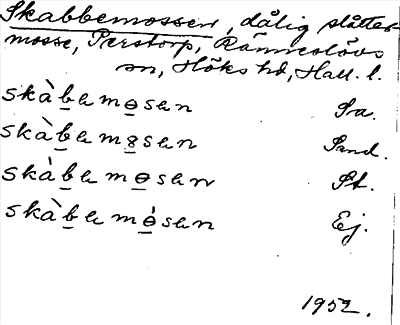 Skabbemossen, dålig slåtter-
mosse, Perstorp, Ränneslövs
sn, Höks hd, Hall. l.
skàbe mosen Sa.
skàbe mosen Sand.
skàbe mosen St.
skàbe mósen Ej.
1952.